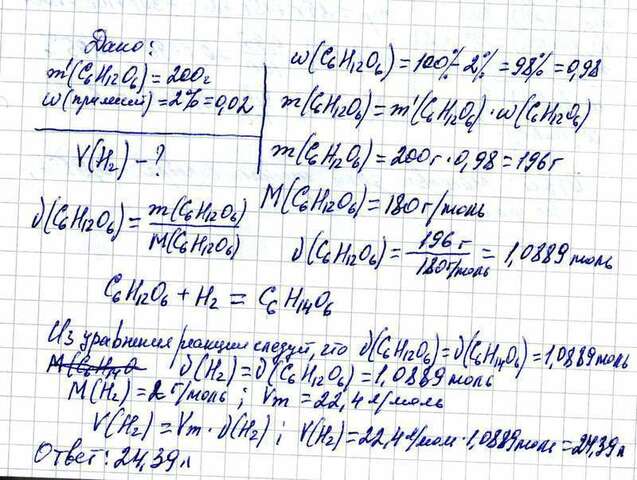 Дано:
m'(C₆H₁₂O₆) = 200г
w(примесей) = 2% = 0,02
V(H₂) - ?
w(C₆H₁₂O₆) = 100% - 2% = 98% = 0,98
m(C₆H₁₂O₆) = m'(C₆H₁₂O₆) · w(C₆H₁₂O₆)
m(C₆H₁₂O₆) = 200г · 0,98 = 196г
M(C₆H₁₂O₆) = 180г/моль
ν(C₆H₁₂O₆) = m(C₆H₁₂O₆) / M(C₆H₁₂O₆)
ν(C₆H₁₂O₆) = 196г / 180г/моль = 1,0889 моль
C₆H₁₂O₆ + H₂ = C₆H₁₄O₆
Из уравнения реакции следует, что ν(C₆H₁₂O₆) = ν(C₆H₁₄O₆) = 1,0889 моль
M(C₆H₁₄O ν(H₂) = ν(C₆H₁₂O₆) = 1,0889 моль
M(H₂) = 2 г/моль ; Vm = 22,4 л/моль
V(H₂) = Vm · ν(H₂) ; V(H₂) = 22,4 л/моль · 1,0889 моль = 24,39 л
Ответ: 24,39 л